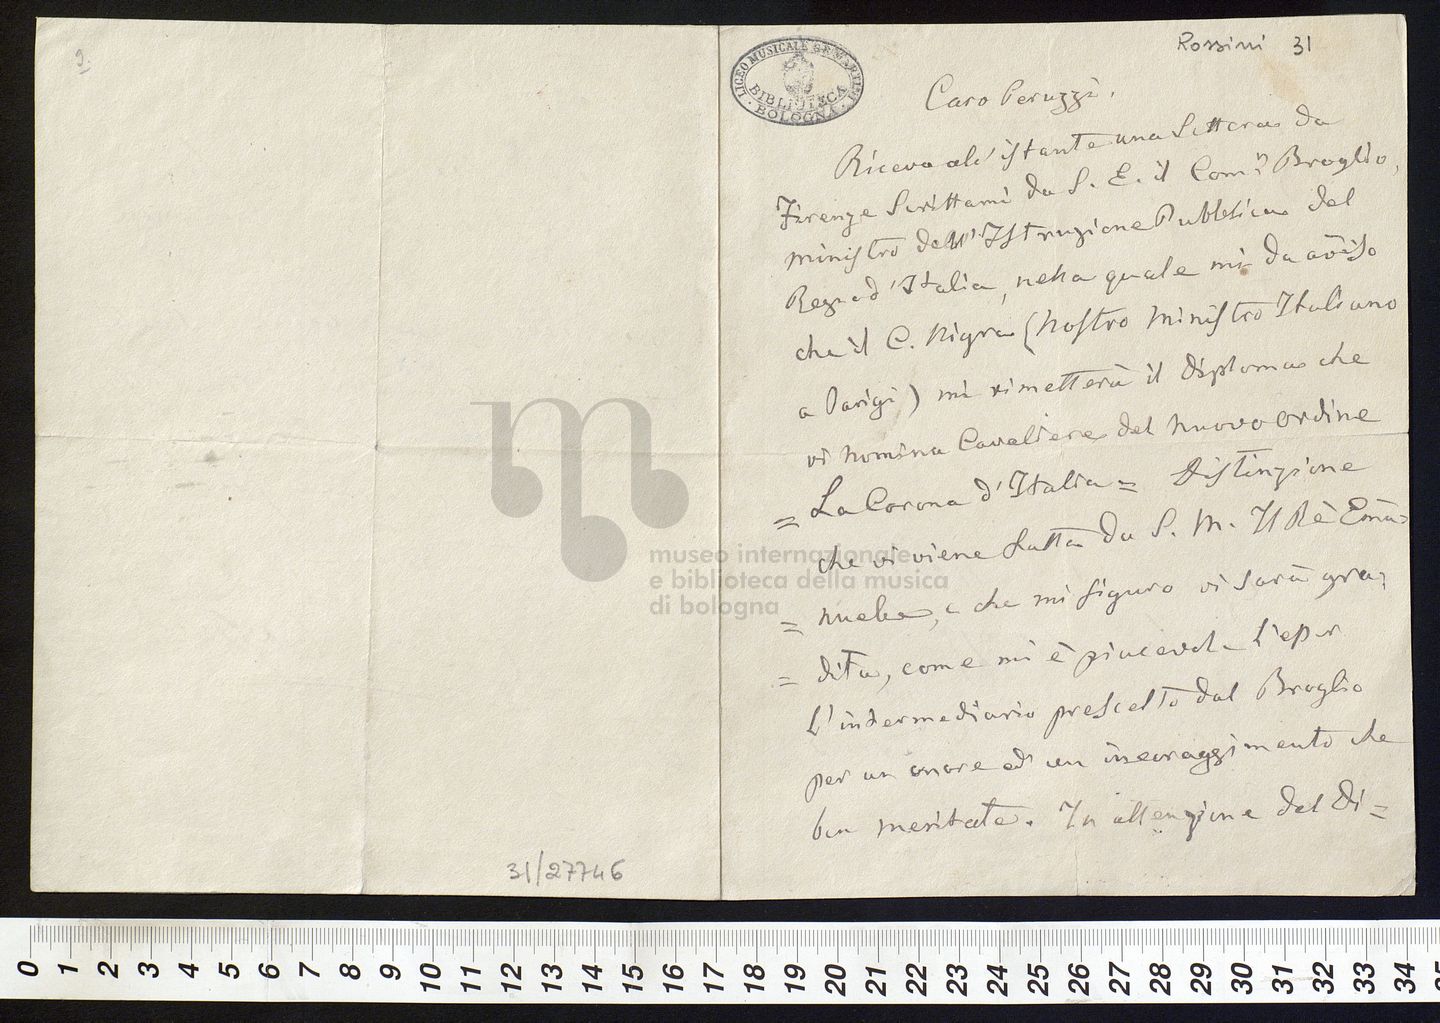 9.
LICEO MUSICALE G. B. MARTINI
BIBLIOTECA
BOLOGNA
Rossini 31
Caro Peruzzi.
Ricevo al'istante una Lettera da
Firenze Scrittami da S. E. il Com.re Broglio,
ministro dell'Istruzione Pubblica del
Regno d'Italia, nella quale mi da aviso
che il C. Nigra (Nostro Ministro Italiano
a Parigi) mi rimetterà il diploma che
vi nomina Cavaliere del Nuovo Ordine
= La Corona d'Italia = Distinzione
che vi viene fatta da S. M. Il Rè Ema=
= nuele, e che mi figuro vi sarà gra=
= dita, come mi è piacevole l'esser
l'intermediario prescelto dal Broglio
per un onore ed un incoraggimento che
ben meritate. In attenzione del Di=
31/27746
museo internazionale
e biblioteca della musica
di bologna
0 1 2 3 4 5 6 7 8 9 10 11 12 13 14 15 16 17 18 19 20 21 22 23 24 25 26 27 28 29 30 31 32 33 34 35